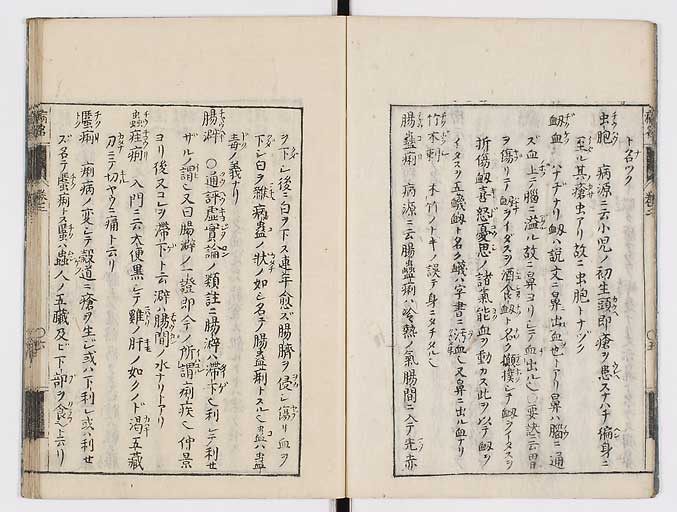 ト名ツク
虫胞 病源ニ云小児ノ初生頭即瘡ヲ患スナハチ徧身ニ
至ル其瘡虫アリ故ニ虫胞トナツク
衂血 ハナヂナリ衂ハ説文ニ鼻出血也トアリ鼻ハ脳ニ通
ズ血上テ脳ニ溢ル故ニ鼻ヨリシテ血出ル也○要訣云
ヲ傷リテ衂ヲイタスヲ酒食衂ト名ク顛撲シテ衂ヲイタスヲ
折傷衂喜怒憂思ノ諸氣能血ヲ動カス此ヲ以テ衂ヲ
イタスヲ五衂ト名ク衊ハ字書ニ汚血又鼻ニ出ル血アリ
竹木刺 木竹ノトゲノ誤テ身ニタチタル也
腸蠱痢 病源ニ云腸蠱痢ハ冷熱ノ氣腸間ニ入テ先赤
ヲ下シ後ニ白ヲ下ス連年愈ズ腸臓ヲ侵シ傷リ血ヲ
下シ白ヲ雜病蠱ノ状ノ如シ名テ腸蠱痢トスル也蠱ハ蠱
毒ノ義ナリ
腸澼 ○通評虚實論ノ類註ニ腸澼ハ滞下也利シテ利セ
ザルノ謂也又曰腸澼ノ一證即今ノ所謂痢疾也仲景
ヨリ後又コレヲ滞下ト云澼ハ腸間ノ水ナリトアリ
蟲疰痢 入門ニ云大便黒シテ雞ノ肝ノ如クノド渇五蔵
刀ニテ切ヤウニ痛ト云リ
䘌痢 痢病ノ変シテ穀道ニ瘡ヲ生シ或ハ下利シ或ハ利セ
ズ名テ䘌痢トス䘌ハ蟲人ノ五臓及ビ下部ヲ食ト云リ